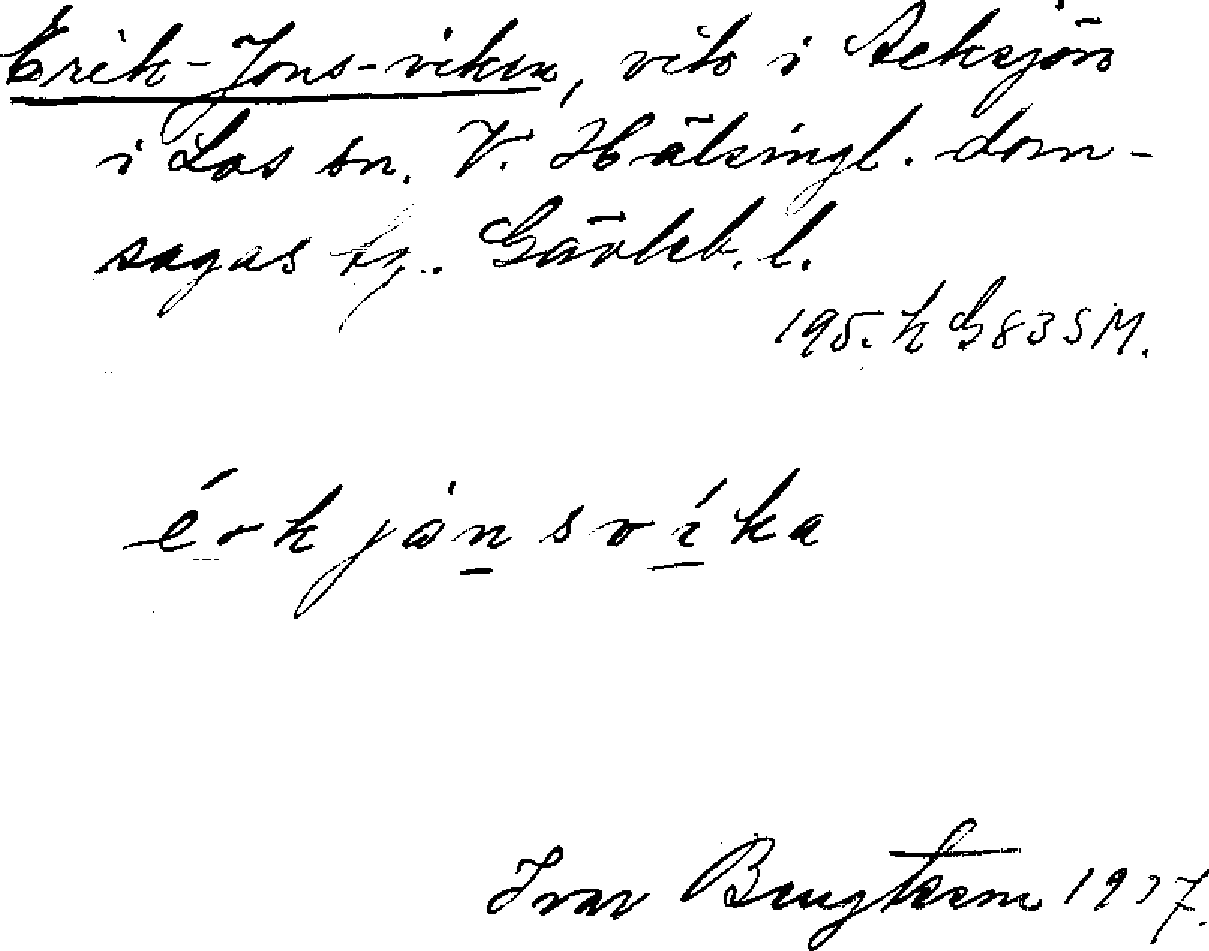 Erik-Jons-viken, vik i Acksjön
i Los sn. V. Hälsingl. dom-
sagas tg. Gävleb. l.
195. h G 83 SM.
érk jånsvíka
Ivar Bengtsson 1937.